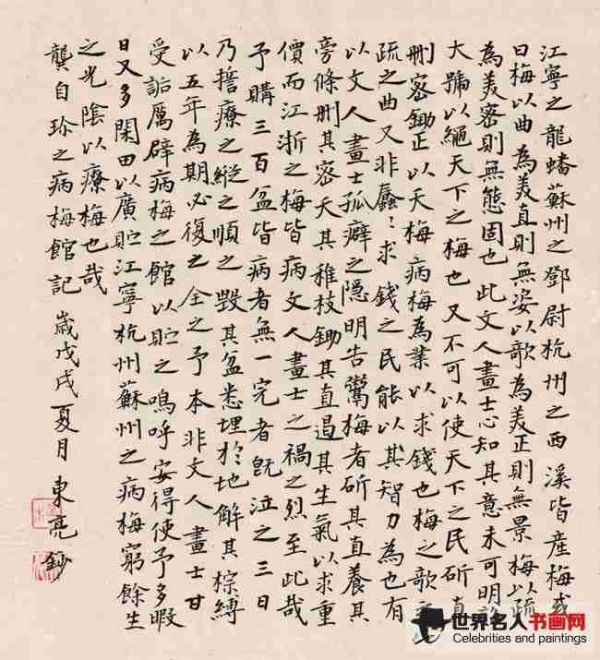 江寧之龍蟠蘇州之鄧尉杭州之西溪皆產梅或
曰梅以曲為美直則無姿以歌為美正則無景梅以疏
為美密則無態固也此文人畫士心知其意未可明詔
大號以繩天下之梅也又不可以使天下之民斫直
刪密鋤正以夭梅病梅為業以求錢也梅之歌之
疏之曲又非蠢〻求錢之民能以其智力為也有
以文人畫士孤癖之隱明告鬻梅者斫其直養其
旁條刪其密夭其稚枝鋤其直遏其生氣以求重
價而江浙之梅皆病文人畫士之禍之烈至此哉
予購三百盆皆病者無一完者既泣之三日
乃誓療之縱之順之毀其盆悉埋於地解其棕縛
以五年為期必復之全之予本非文人畫士甘
受詬厲辟病梅之館以貯之嗚呼安得使予多暇
日又多閑田以廣貯江寧杭州蘇州之病梅窮餘生
之光陰以療梅也哉
龔自珍之病梅館記 歲戊戌夏月 東亮鈔
世界名人书画网
Celebrities and paintings